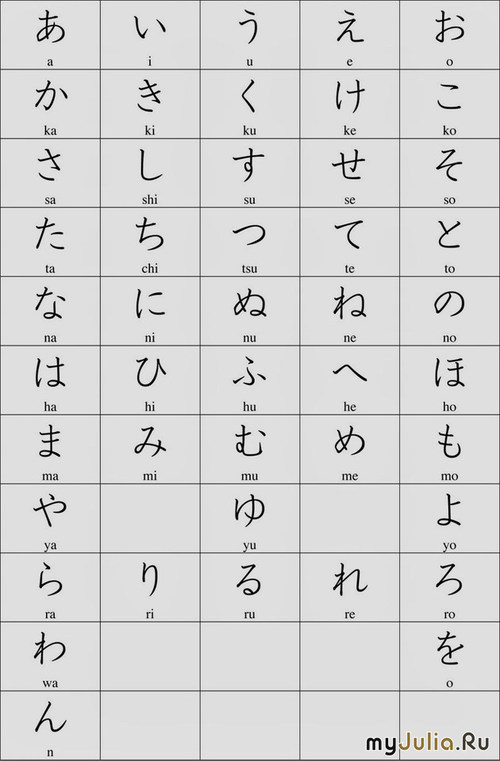 あ い う え お
a i u e o
か き く け こ
ka ki ku ke ko
さ し す せ そ
sa shi su se so
た ち つ て と
ta chi tsu te to
な に ぬ ね の
na ni nu ne no
は ひ ふ へ ほ
ha hi hu he ho
ま み む め も
ma mi mu me mo
や ゆ よ
ya yu yo
ら り る れ ろ
ra ri ru re ro
わ を
wa o
ん
n
myJulia.Ru